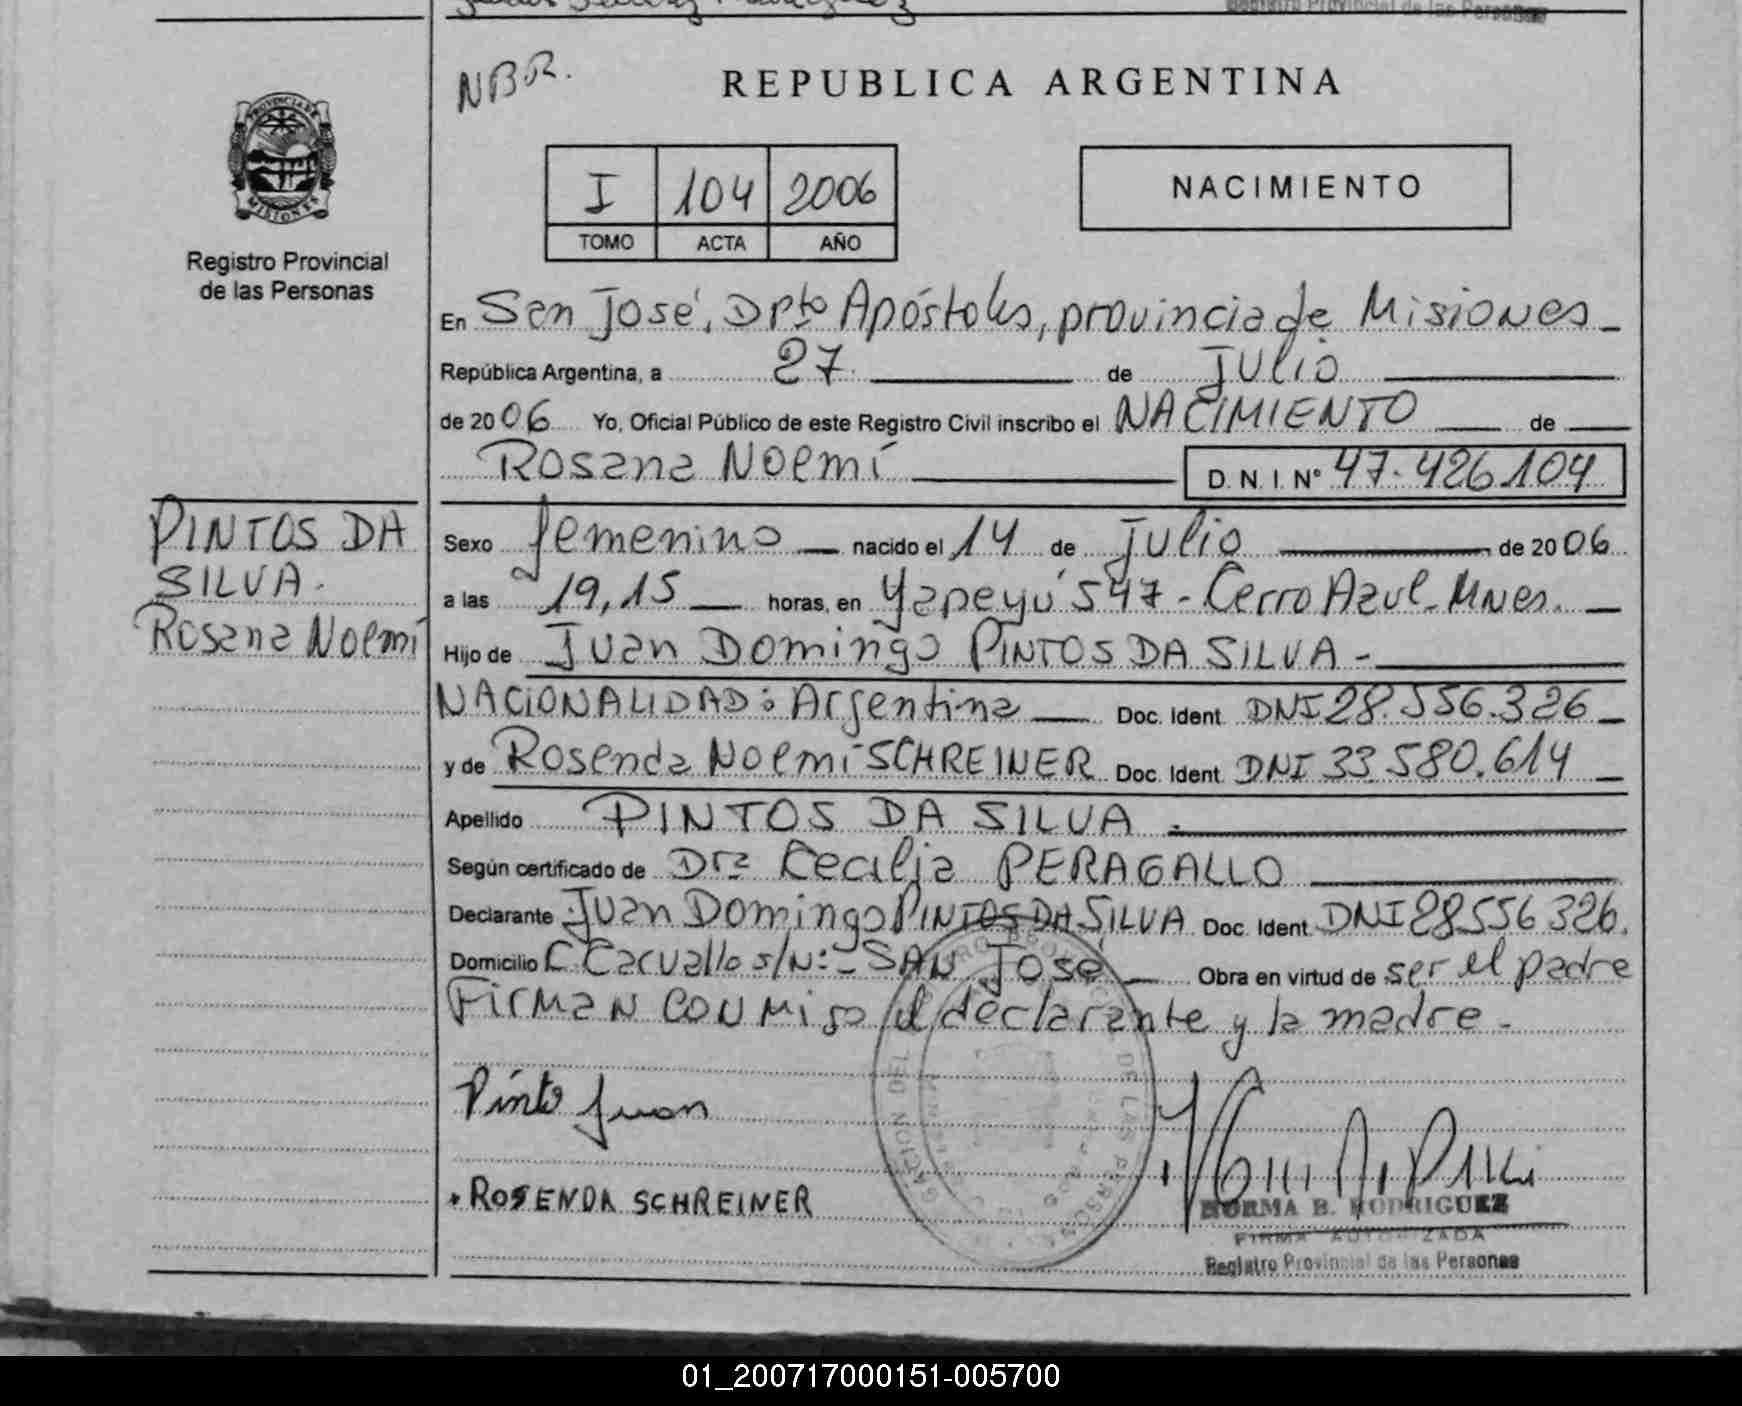 Registro Provincial de las Personas
NBR.
REPUBLICA ARGENTINA
PROVINCIA DE
MISIONES
Registro Provincial
de las Personas
I 104 2006
TOMO ACTA AÑO
NACIMIENTO
En San José, Dpto Apóstoles, provincia de Misiones _
República Argentina, a 27 de Julio
de 2006 Yo, Oficial Público de este Registro Civil inscribo el NACIMIENTO de
Rosana Noemí D. N. I. Nº 47.426.104
PINTOS DA
SILVA.
Rosana Noemí
Sexo femenino nacido el 14 de julio de 2006
a las 19,15 horas, en Yapeyú 547 - Cerro Azul - Mnes.
Hijo de Juan Domingo PINTOS DA SILVA -
NACIONALIDAD: Argentina Doc. Ident. DNI 28.556.326
y de Rosenda Noemí SCHREINER Doc. Ident. DNI 33.580.614
Apellido PINTOS DA SILVA .
Según certificado de Dra Cecilia PERAGALLO
Declarante Juan Domingo PINTOS DA SILVA Doc. Ident. DNI 28556326.
Domicilio C. Carvallo s/Nº - SAN José Obra en virtud de ser el padre
Firman conmigo el declarante y la madre -
Pinto Juan
ROSENDA SCHREINER
NORMA B. RODRIGUEZ
FIRMA AUTORIZADA
Registro Provincial de las Personas
01_200717000151-005700